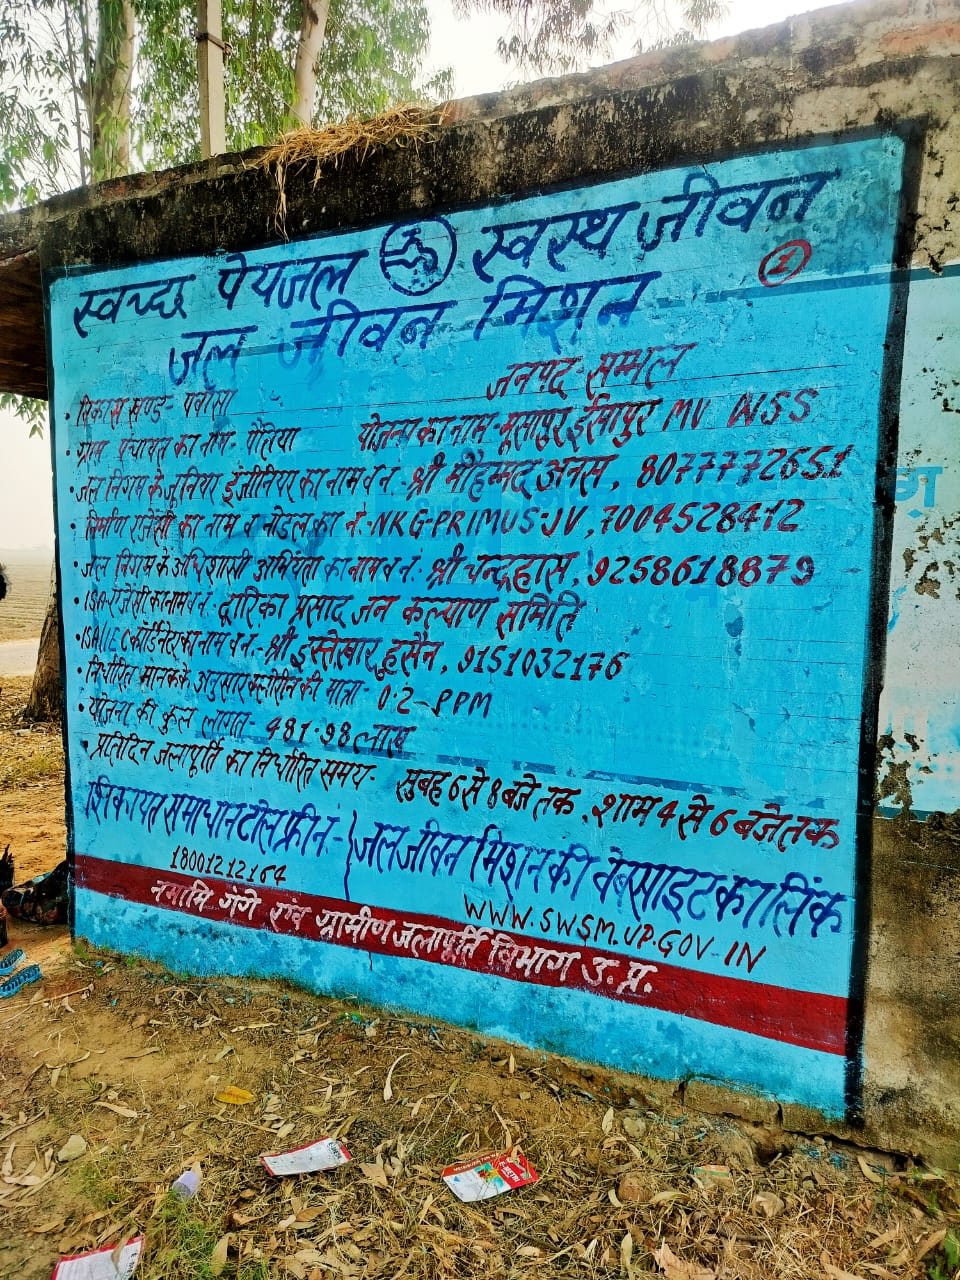 स्वच्छ पेयजल स्वस्थ जीवन
जल जीवन मिशन
1
जनपद - सम्भल
• विकास खण्ड - पवांसा
• ग्राम पंचायत का नाम - पौतिया योजना का नाम - मूसापुर ईसापुर MV WSS
• जल निगम के जूनियर इंजीनियर का नाम व नं. - श्री मौहम्मद अनस, 8077772651
• निर्माण एजेंसी का नाम व नोडल का नं. - NKG-PRIMUS-JV, 7004528412
• जल निगम के अधिशासी अभियंता का नाम व नं. श्री चन्द्रहास, 9258618879
• ISA-एजेंसी का नाम व नं. द्वारिका प्रसाद जन कल्याण समिति
• ISA/IEC कॉर्डिनेटर का नाम व नं. - श्री इस्तेखार हुसैन, 9151032176
• निर्धारित मानक के अनुसार क्लोरीन की मात्रा - 0.2-PPM
• योजना की कुल लागत - 481.98 लाख
• प्रतिदिन जलापूर्ति का निर्धारित समय - सुबह 6 से 8 बजे तक, शाम 4 से 6 बजे तक
शिकायत समाधान टोल फ्री नं. - जल जीवन मिशन की वेबसाइट का लिंक
18001212164 WWW.SWSM.UP.GOV.IN
नमामि गंगे एंव ग्रामीण जलापूर्ति विभाग उ.प्र.